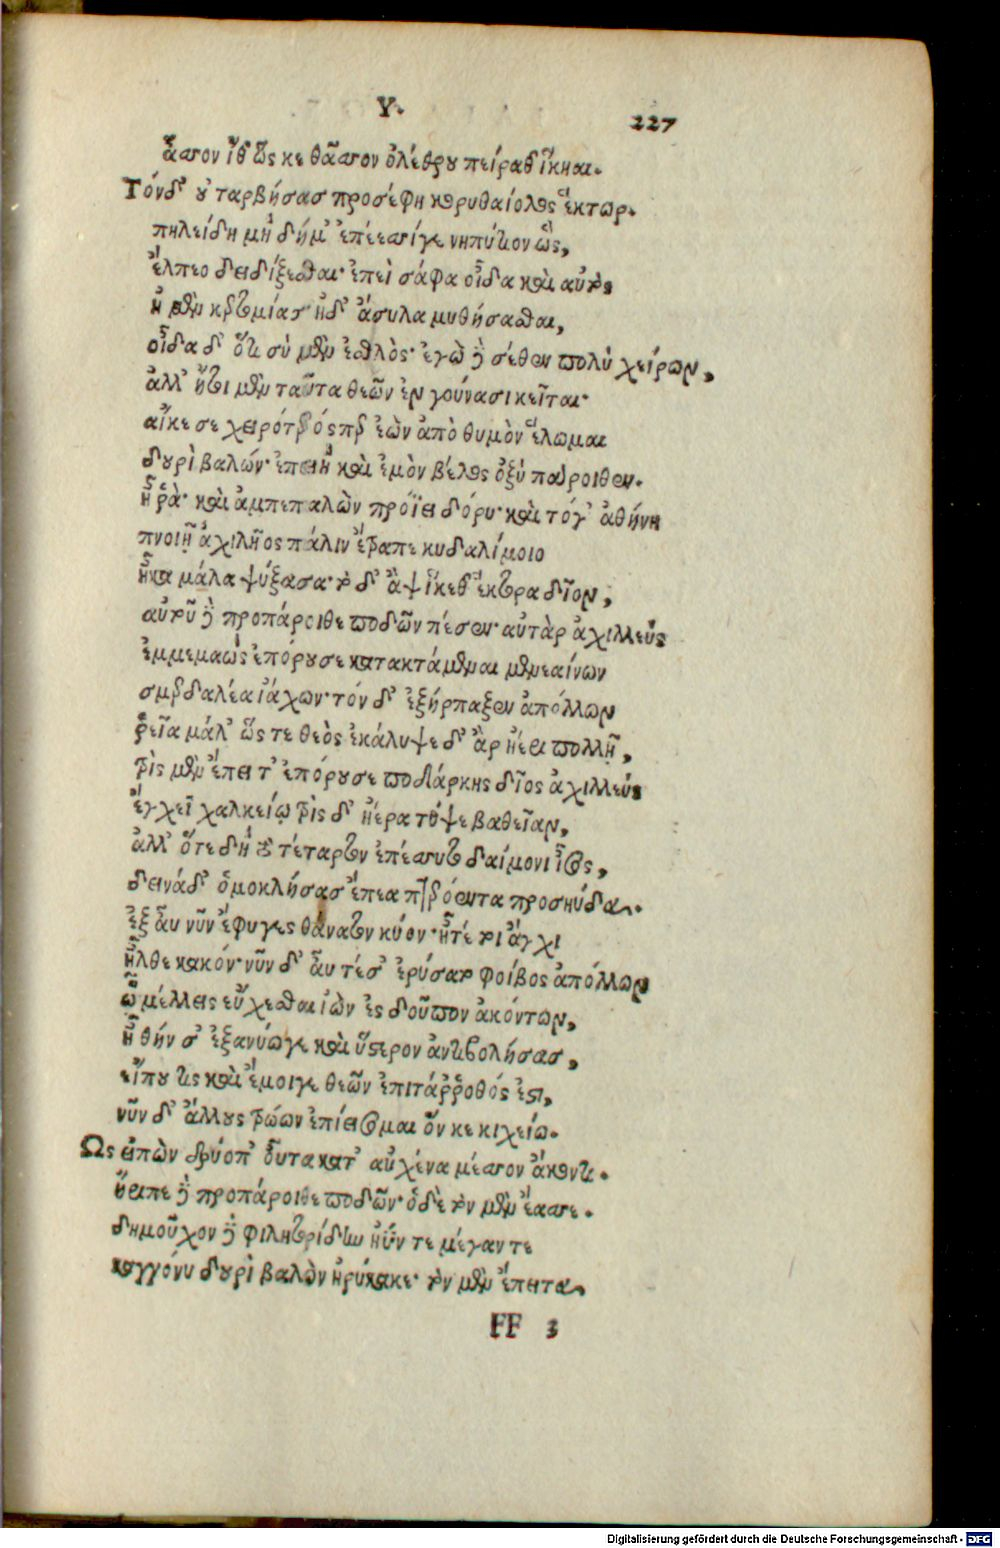 Υ.
227
ἆσσον ἴθ᾽ ὥς κε θᾶσσον ὀλέθρου πείραθ᾽ ἵκηαι.
Τόνδ᾽ οὐ ταρβήσασ προσέφη κορυθαίολος ἕκτωρ.
πηλείδη μὴ δή μ᾽ ἐπέεσσίγε νηπύτιον ὣς,
ἔλπεο δειδίξεσθαι· ἐπεὶ σάφα οἶδα καὶ αὐτὸς
ἠμὲν κερτομίασ ἠδ᾽ ἄσυλα μυθήσασθαι,
οἶδα δ᾽ ὅτι σὺ μὲν ἐσθλὸς· ἐγὼ δὲ σέθεν πολὺ χείρων,
ἀλλ᾽ ἤτοι μὲν ταῦτα θεῶν ἐν γούνασι κεῖται·
αἴκε σε χειρότερός περ ἐὼν ἀπὸ θυμὸν ἕλωμαι
δουρὶ βαλών· ἐπειὴ καὶ ἐμὸν βέλος ὀξὺ πάροιθεν.
ἦ ῥὰ· καὶ ἀμπεπαλὼν προΐει δόρυ· καὶ τόγ᾽ ἀθήνη
πνοιῇ ἀχιλῆος πάλιν ἔτραπε κυδαλίμοιο
ἦκα μάλα ψύξασα· τὸ δ᾽ ἂψ ἵκεθ᾽ ἕκτορα δῖον,
αὐτοῦ δὲ προπάροιθε ποδῶν πέσεν· αὐτὰρ ἀχιλλεὺς
ἐμμεμαὼς ἐπόρουσε κατακτάμεναι μενεαίνων
σμερδαλέα ἰάχων· τόν δ᾽ ἐξήρπαξεν ἀπόλλων
ῥεῖα μάλ᾽ ὥς τε θεὸς ἐκάλυψε δ᾽ ἂρ ἠέρι πολλῇ,
τρὶς μὲν ἔπειτ᾽ ἐπόρουσε ποδάρκης δῖος ἀχιλλεὺς
ἔγχεϊ χαλκείῳ τρὶς δ᾽ ἠέρα τύψε βαθεῖαν,
ἀλλ᾽ ὅτε δὴ τὸ τέταρτον ἐπέσσυτο δαίμονι ἶσος,
δεινὰ δ᾽ ὁμοκλήσασ ἔπεα πτερόεντα προσηύδα.
ἐξ ἆυ νῦν ἔφυγες θάνατον κύον· ἦτέ τοι ἄγχι
ἦλθε κακόν· νῦν δ᾽ ἆυ τέσ᾽ ἐρύσατο φοίβος ἀπόλλων
ᾧ μέλλεις εὔχεσθαι ἰὼν ἐς δοῦπον ἀκόντων,
ἦ θήν σ᾽ ἐξανύωγε καὶ ὕστερον ἀντιβολήσασ,
εἴ που τις καὶ ἔμοιγε θεῶν ἐπιτάῤῥοθός ἐστι,
νῦν δ᾽ ἄλλους τρώων ἐπιείσομαι ὅν κε κιχείω.
Ως εἰπὼν δρύοπ᾽ οὖτα κατ᾽ αὐχένα μέσσον ἄκοντι.
ἤριπε δὲ προπάροιθε ποδῶν· ὁδὲ τὸν μὲν ἔασσε.
δημοῦχον δὲ φιλητορίδην ἠΰν τε μέγαν τε
καγγόνυ δουρὶ βαλὼν ἠρύκακε· τὸν μὲν ἔπειτα
FF 3
Digitalisierung gefördert durch die Deutsche Forschungsgemeinschaft - DFG